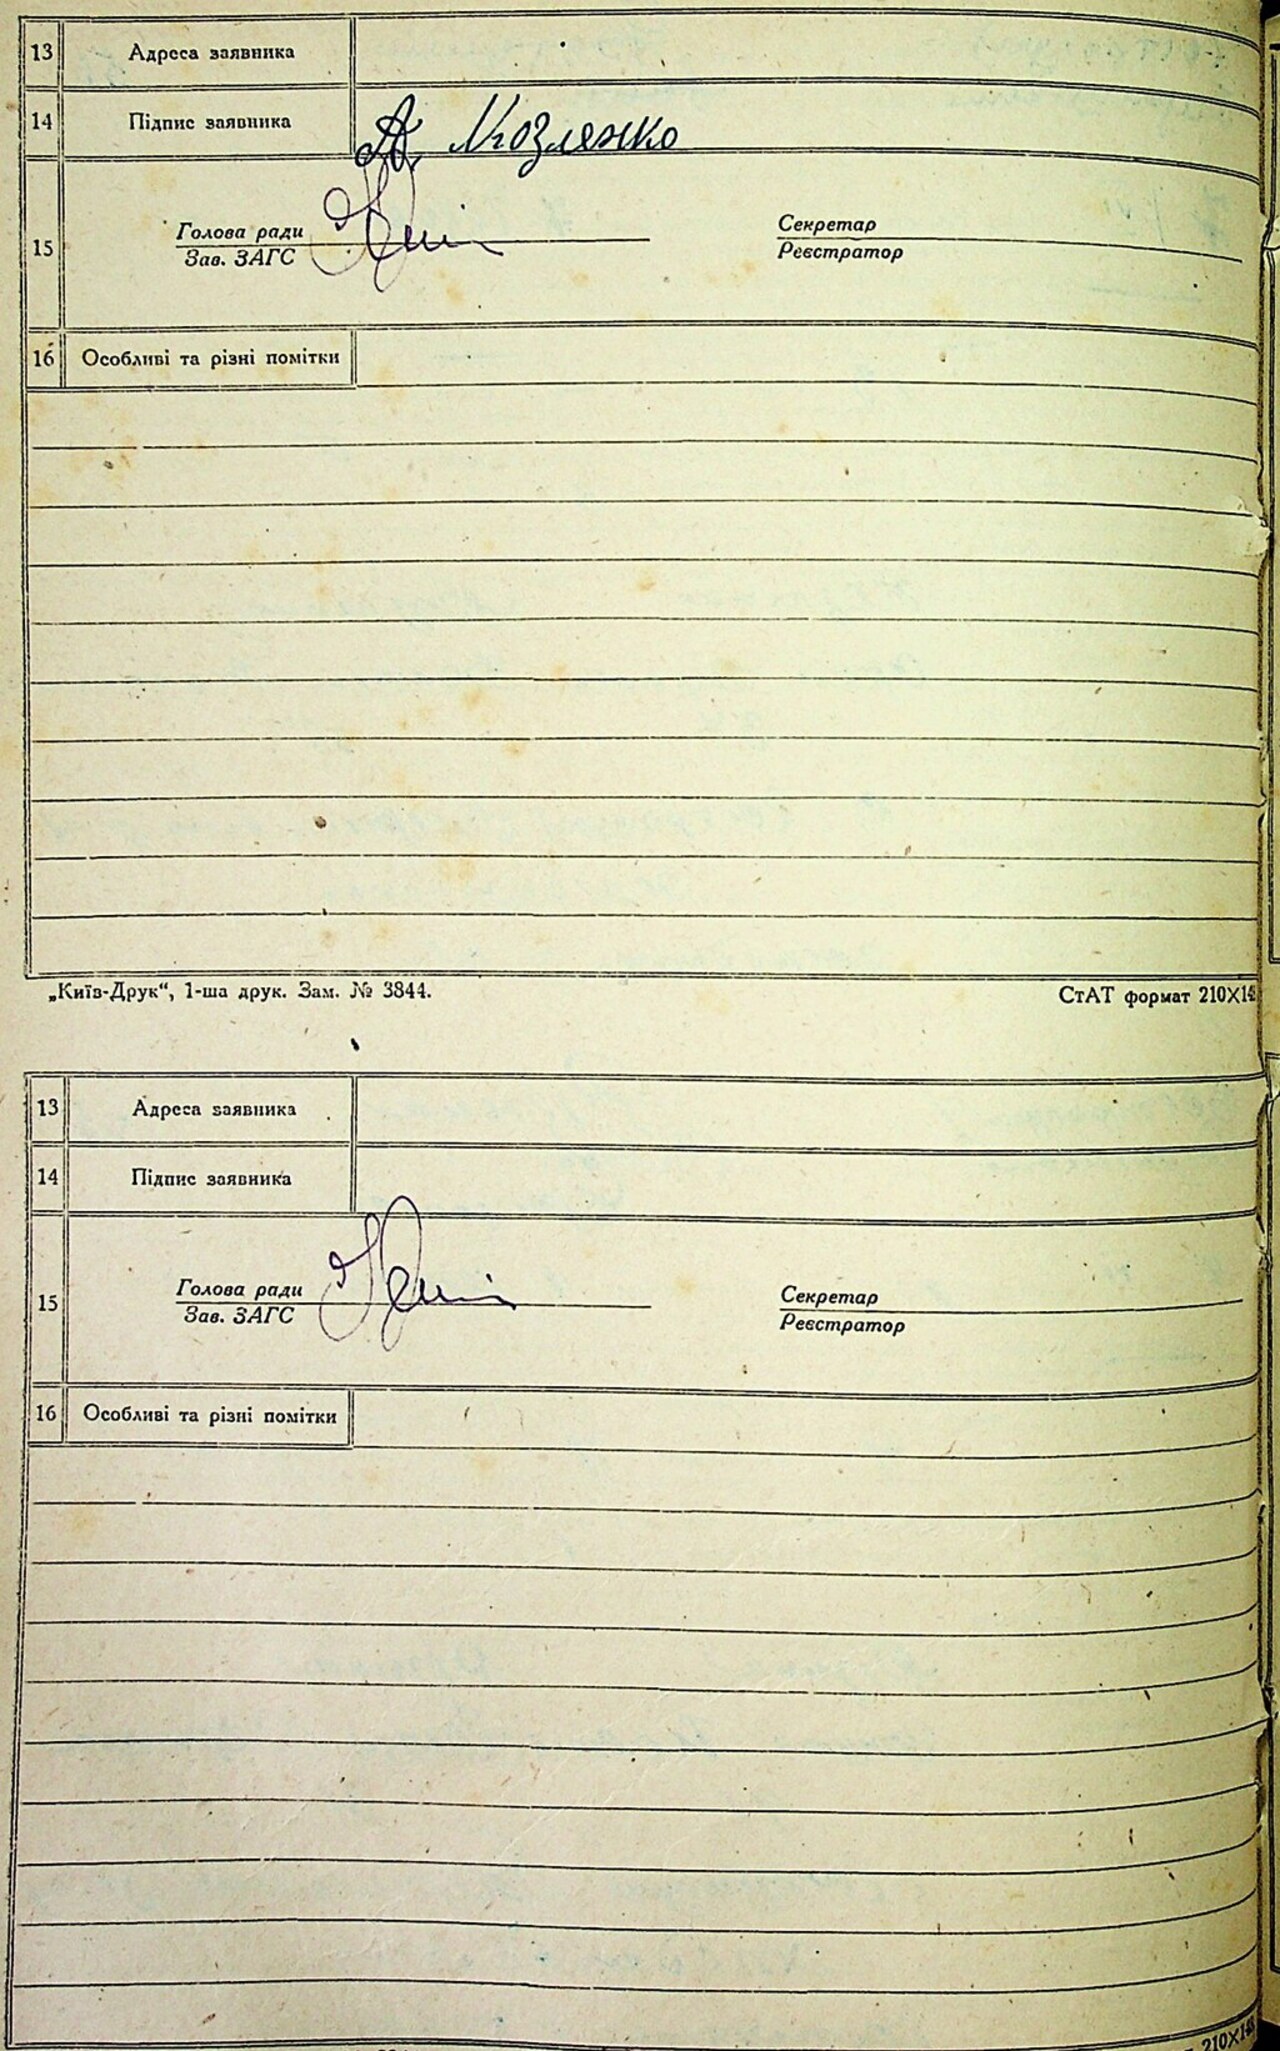 13 Адреса заявника
14 Підпис заявника А. Козленко
15 Голова ради Секретар
Зав. ЗАГС Реєстратор
16 Особливі та різні помітки
„Київ-Друк“, 1-ша друк. Зам. № 3844. СтАТ формат 210X14
13 Адреса заявника
14 Підпис заявника
15 Голова ради Секретар
Зав. ЗАГС Реєстратор
16 Особливі та різні помітки
210X14